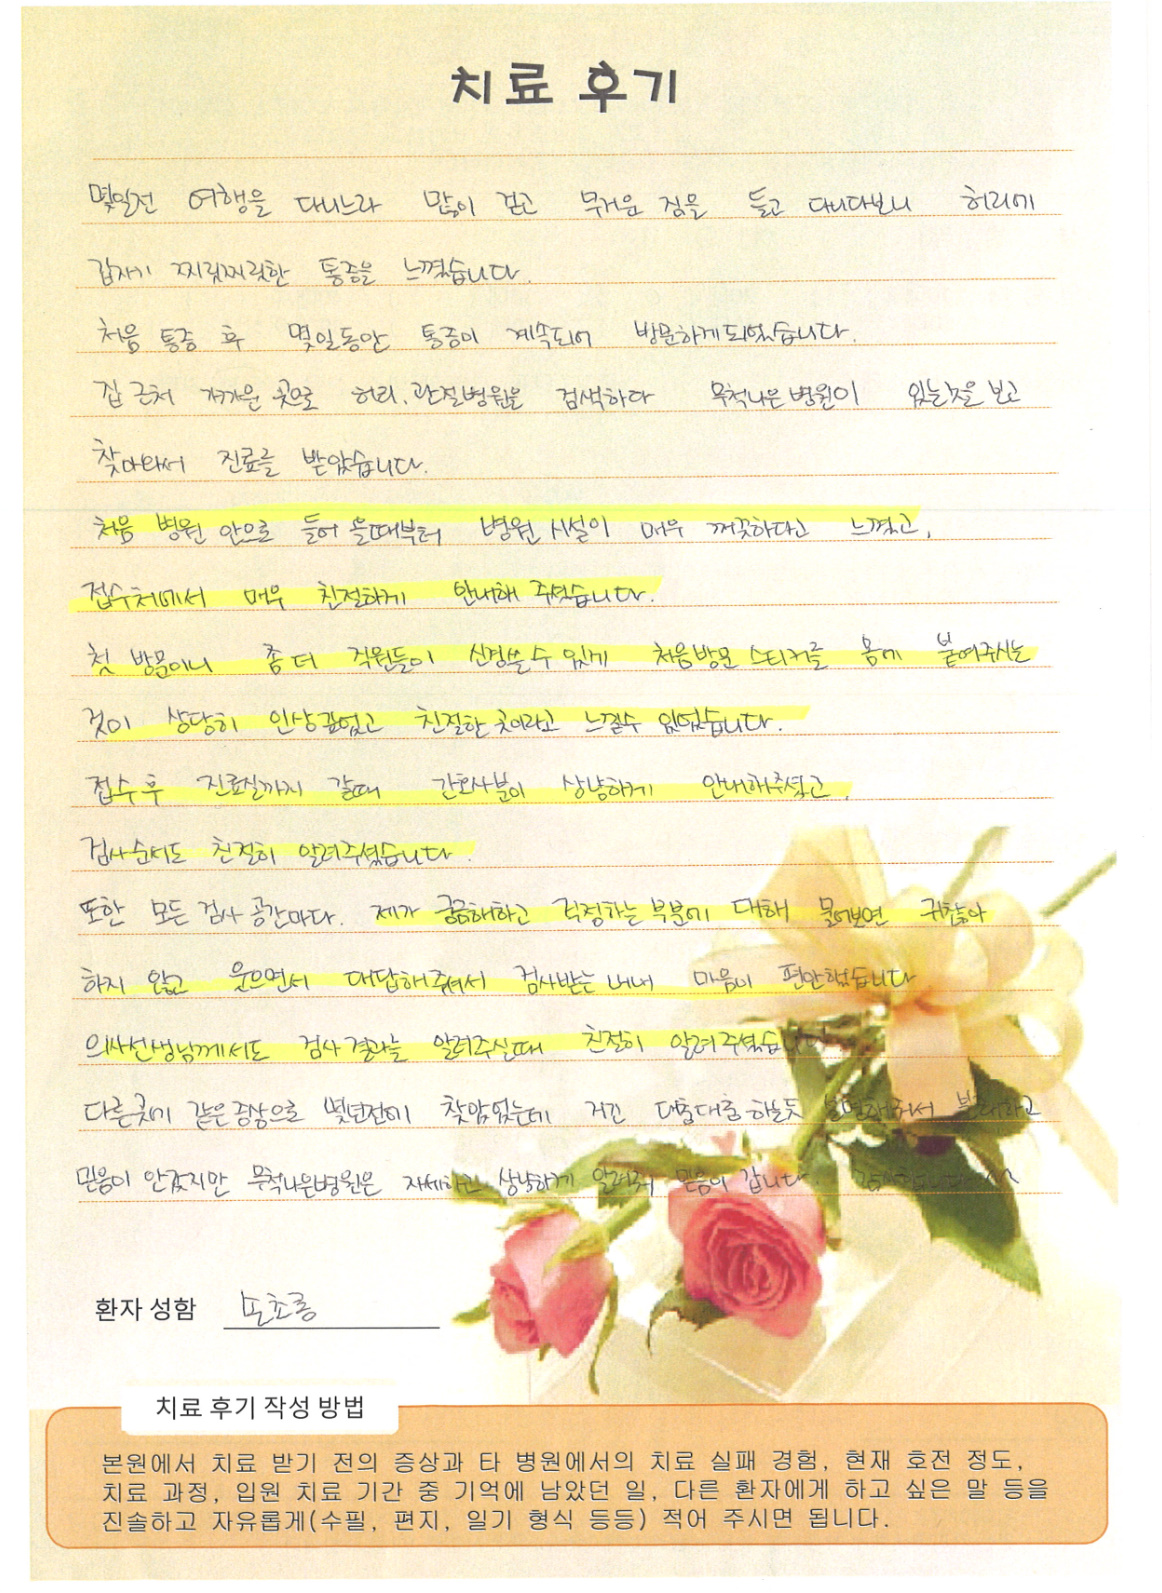 치료 후기
몇일전 여행을 다니느라 많이 걷고 무거운 짐을 들고 다니다보니 허리에
갑자기 찌릿찌릿한 통증을 느꼈습니다.
처음 통증 후 몇일동안 통증이 계속되어 방문하게되었습니다.
집 근처 가까운 곳으로 허리, 관절병원을 검색하다 목척나은병원이 있는것을 보고
찾아와서 진료를 받았습니다.
처음 병원 안으로 들어 올때부터 병원 시설이 매우 깨끗하다고 느꼈고,
접수처에서 매우 친절하게 안내해 주셨습니다.
첫 방문이니 좀 더 직원들이 신경쓸 수 있게 처음방문 스티커를 몸에 붙여주시는
것이 상당히 인상깊었고 친절한 곳이라고 느낄수 있었습니다.
접수 후 진료실까지 갈때 간호사분이 상냥하게 안내해주셨고,
검사순서도 친절히 알려주셨습니다.
또한 모든 검사 공간마다. 제가 궁금해하고 걱정하는 부분에 대해 물어보면 귀찮아
하지 않고 웃으면서 대답해주셔서 검사받는 내내 마음이 편안했습니다
의사선생님께서도 검사 결과를 알려주실때 친절히 알려주셨습니다
다른곳에 같은증상으로 몇년전에 찾았었는데 거긴 대충대충 하는듯 설명해줘서 불쾌하고
믿음이 안갔지만 목척나은병원은 자세하고 상냥하게 알려줘 믿음이 갑니다.
환자 성함
치료 후기 작성 방법
본원에서 치료 받기 전의 증상과 타 병원에서의 치료 실패 경험, 현재 호전 정도,
치료 과정, 입원 치료 기간 중 기억에 남았던 일, 다른 환자에게 하고 싶은 말 등을
진솔하고 자유롭게(수필, 편지, 일기 형식 등등) 적어 주시면 됩니다.